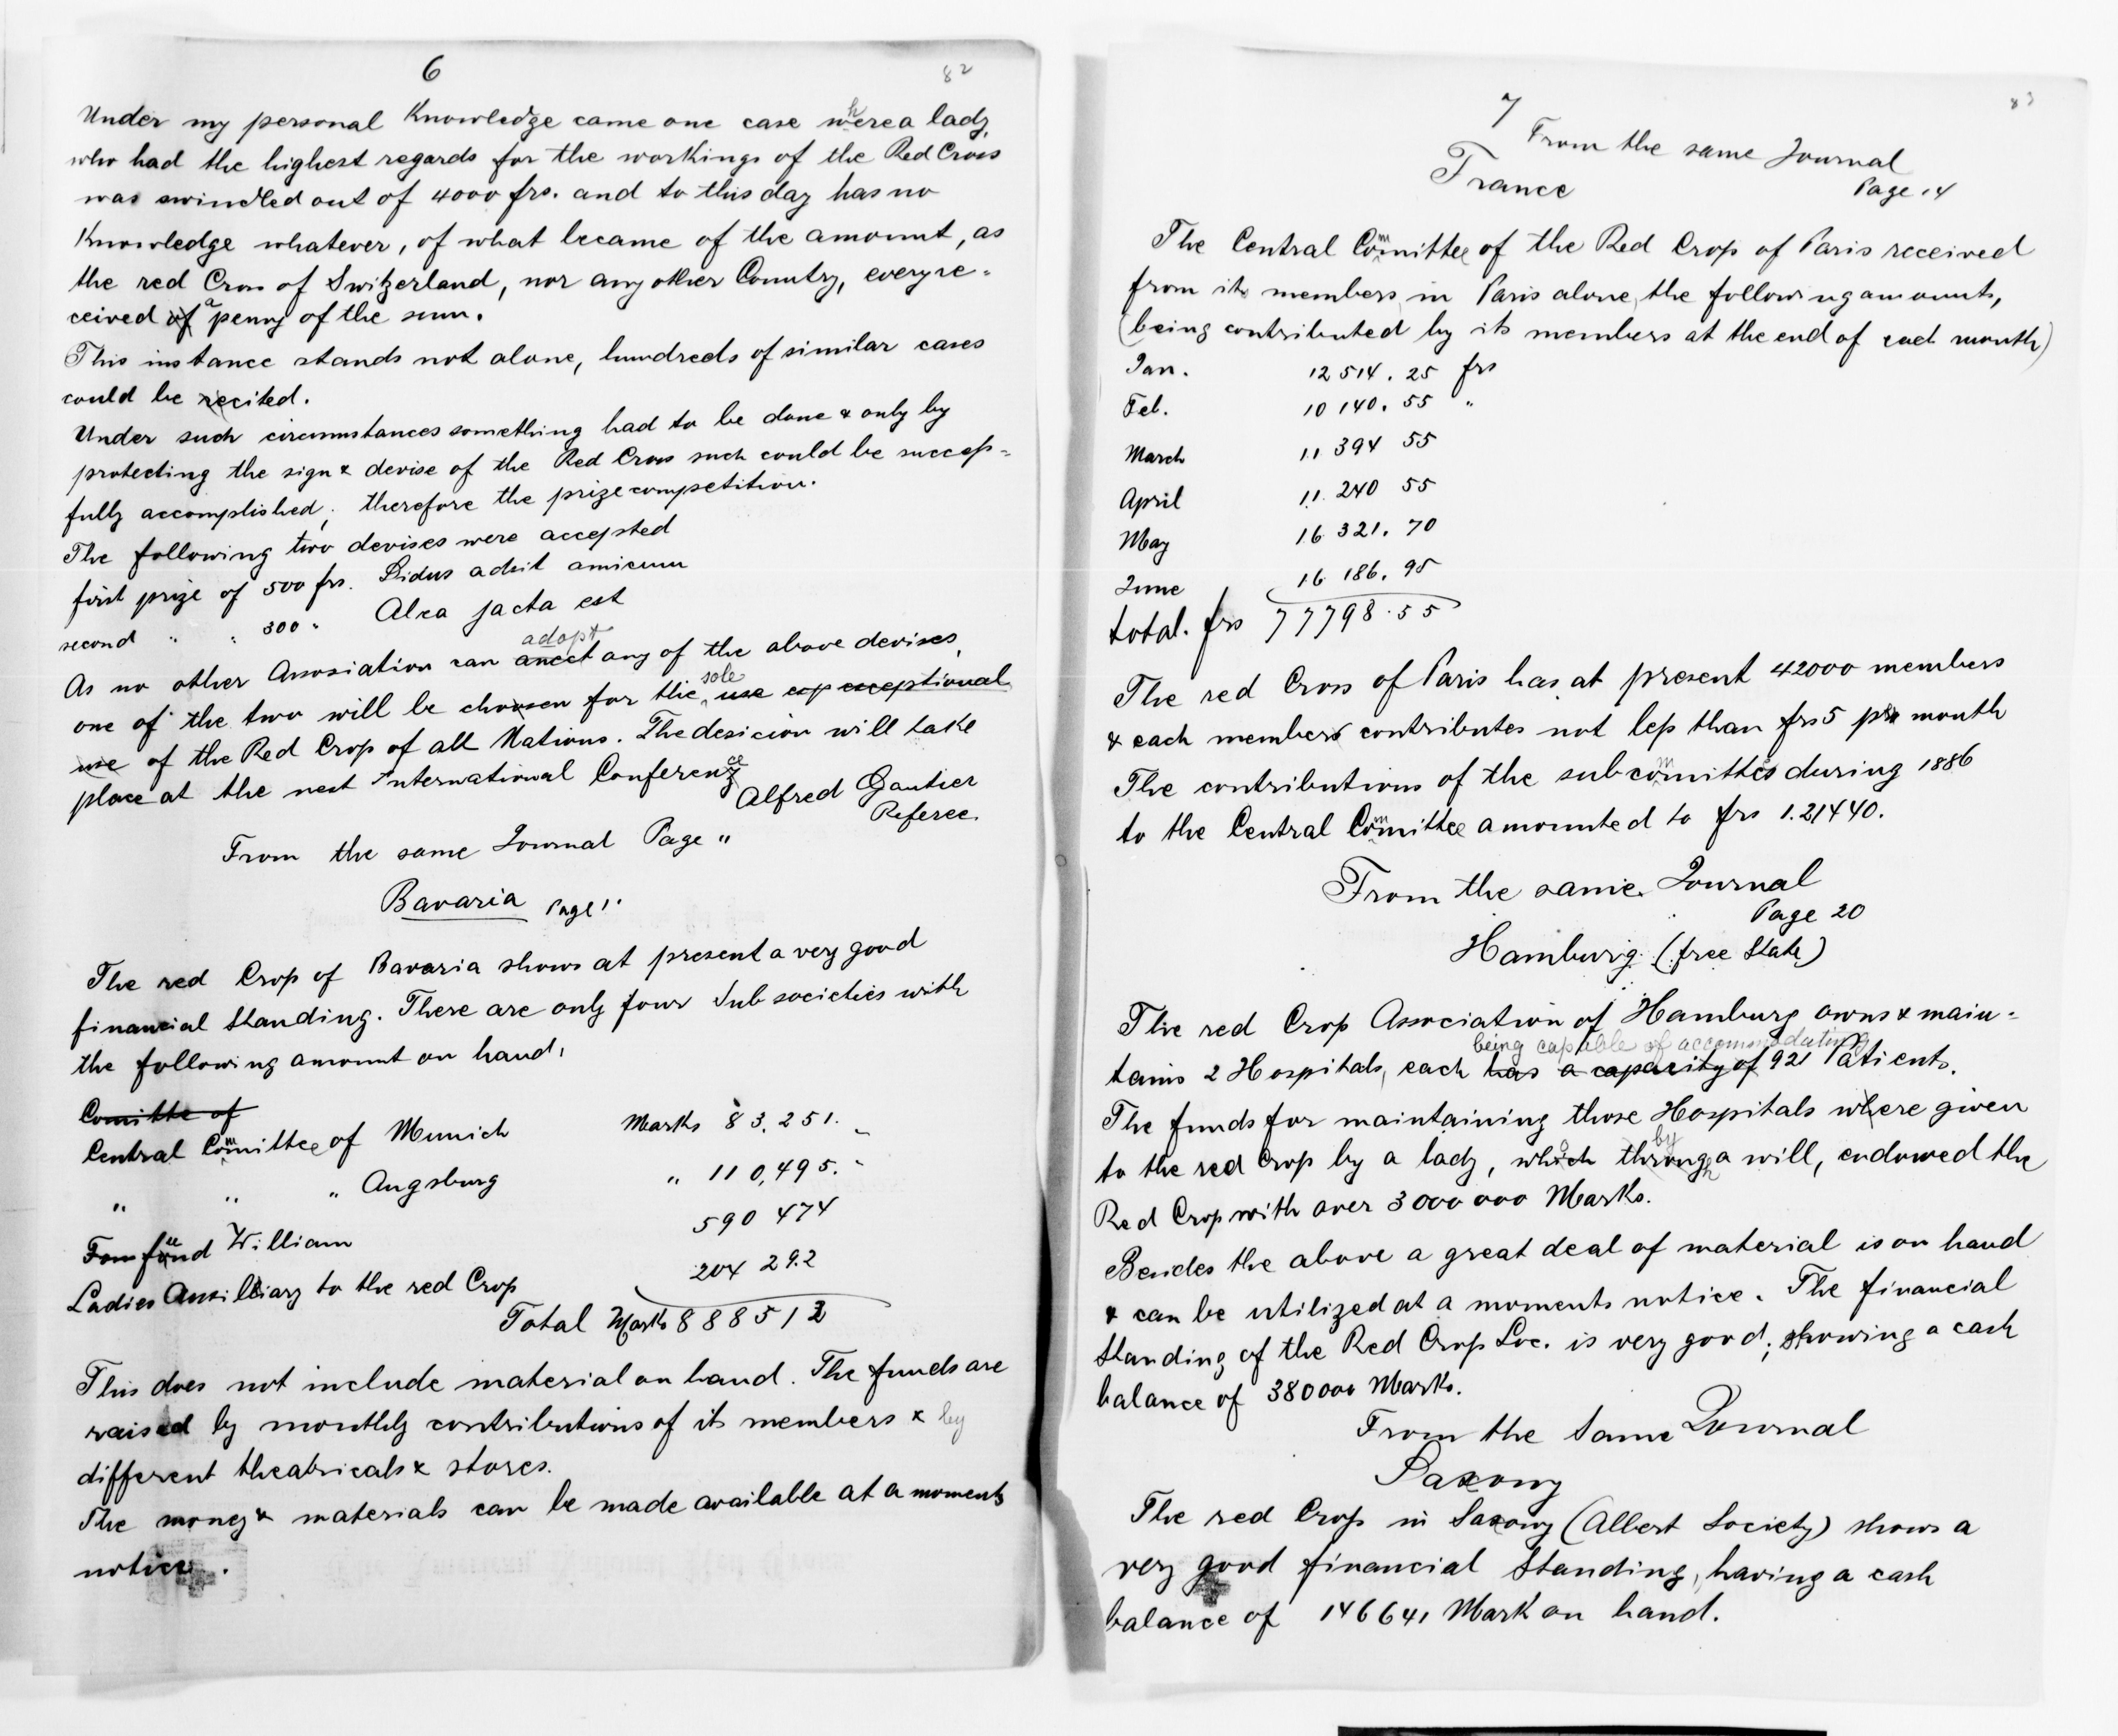 6
82
Under my personal Knowledge came one case where a lady,
who had the highest regards for the workings of the Red Cross
was swindled out of 4000 frs. and to this day has no
Knowledge whatever, of what became of the amount, as
the red Cross of Switzerland, nor any other Country, every re-
ceived of a penny of the sum.
This instance stands not alone, hundreds of similar cases
could be recited.
Under such circumstances something had to be done & only by
protecting the sign & devise of the Red Cross such could be success-
fully accomplished; therefore the prize competition.
The following two devises were accepted
first prize of 500 frs. Sidus adsit amicum
second " " 300 " Alea jacta est
adopt
As no other Assosiation can any of the above devises,
sole
one of the two will be chosen for the use exp exceptional
use of the Red Cross of all Nations. The desicion will take
place at the next International Conference
Alfred Gautier
Referee.
From the same Journal Page "
Bavaria Page 11
The red Cross of Bavaria shows at present a very good
financial standing. There are only four Sub societies with
the following amount on hand,
Comitte of
Central Committee of Munich Marks 83,251. "
" " " Augsburg " 110,495. "
fund William 590 474
Ladies Auxilliary to the red Cross 204 292
Total Marks 888512
This does not include material on hand. The funds are
raised by monthly contributions of its members & by
different theatricals & stores.
The money & materials can be made available at a moments
notice.
7
83
From the same Journal
France Page 14
The Central Committee of the Red Cross of Paris received
from its members in Paris alone, the following amounts,
(being contributed by its members at the end of each month)
Jan. 12 514. 25 frs
Feb. 10 140. 55 "
March 11 394 55
April 11. 240 55
May 16 321. 70
June 16 186. 95
total. frs 77798.55
The red Cross of Paris has at present 42000 members
& each members contributes not less than frs 5 pr month
The contributions of the subcommittes during 1886
to the Central Committee amounted to frs 1.21440.
From the same Journal
Page 20
Hamburg (free State)
The red Cross Association of Hamburg owns & main-
being capable of accommodating
tains 2 Hospitals, each has a capacity of 921 Patients.
The funds for maintaining those Hospitals where given
by
to the red Cross by a lady, who through a will, endowed the
Red Cross with over 3000000 Marks.
Besides the above a great deal of material is on hand
& can be utilized at a moments notice. The financial
standing of the Red Cross Soc. is very good; showing a cash
balance of 380000 Marks.
From the same Journal
Saxony
The red Cross in Saxony (Albert Society) shows a
very good financial standing, having a cash
balance of 146641 Mark on hand.